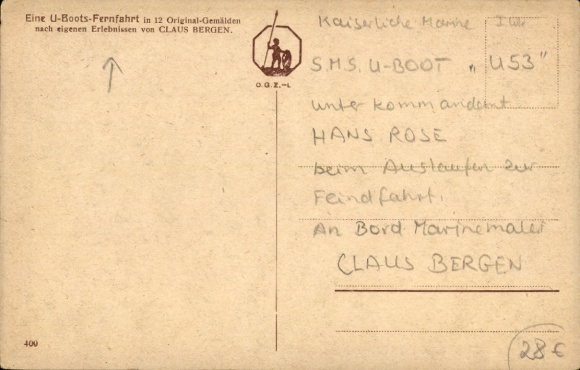 Eine U-Boots-Fernfahrt in 12 Original-Gemälden
nach eigenen Erlebnissen von CLAUS BERGEN.
O.G.Z.-L
Kaiserliche Marine
S.M.S. U-BOOT „U53"
unter Kommandant
HANS ROSE
beim Auslaufen zur
Feindfahrt.
An Bord Marinemaler
CLAUS BERGEN
400
28€